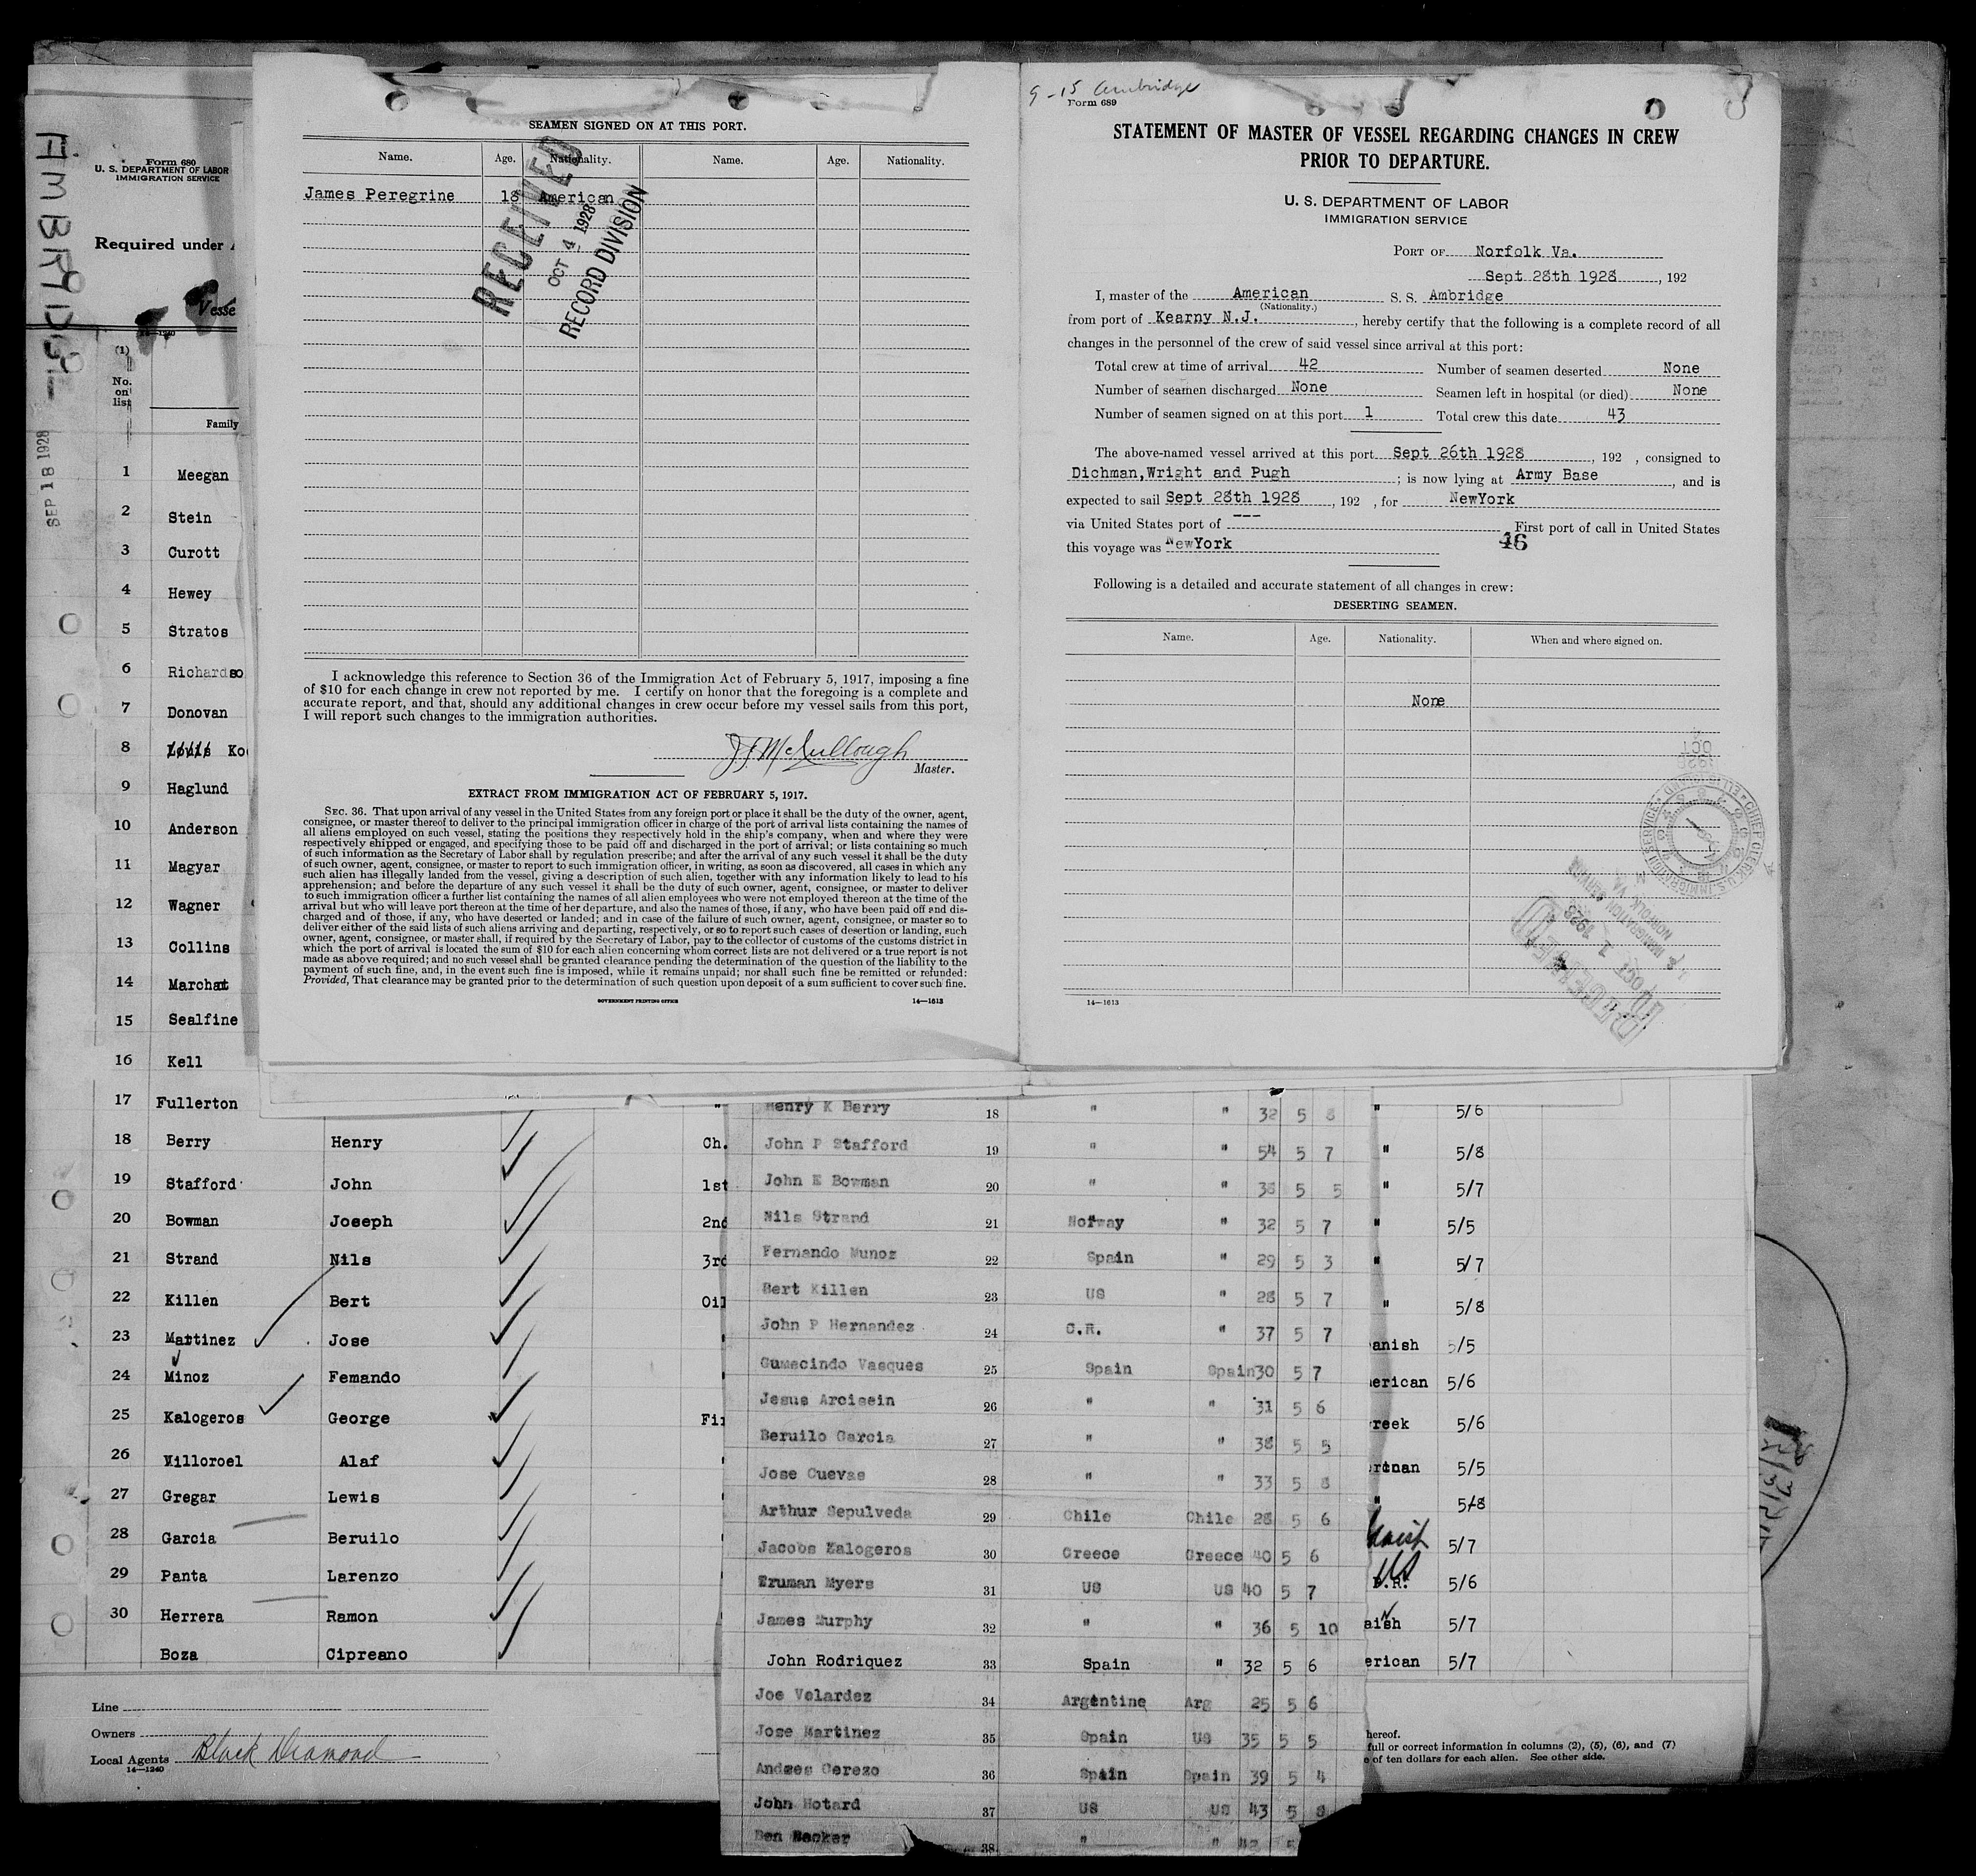 AMBRIDGE
SEP 18 1928
Form 680
U. S. DEPARTMENT OF LABOR
IMMIGRATION SERVICE
Required under
Vesse
14—1240
(1)
No.
on
list
Family
1 Meegan
2 Stein
3 Curott
4 Hewey
5 Stratos
6 Richardso
7 Donovan
8 Louis Ko
9 Haglund
10 Anderson
11 Magyar
12 Wagner
13 Collins
14 Marchat
15 Sealfine
16 Kell
17 Fullerton
18 Berry Henry Ch.
19 Stafford John 1st
20 Bowman Joseph 2nd
21 Strand Nils 3rd
22 Killen Bert Oil
23 Martinez Jose
24 Minoz Femando
25 Kalogeros George Fi
26 Villoroel Alaf
27 Gregar Lewis
28 Garcia Beruilo
29 Panta Larenzo
30 Herrera Ramon
Boza Cipreano
Line
Owners
Local Agents Black Diamond
14—1240
SEAMEN SIGNED ON AT THIS PORT.
Name. Age. Nationality. Name. Age. Nationality.
James Peregrine 18 American
RECEIVED
OCT 4 1928
RECORD DIVISION
I acknowledge this reference to Section 36 of the Immigration Act of February 5, 1917, imposing a fine
of $10 for each change in crew not reported by me. I certify on honor that the foregoing is a complete and
accurate report, and that, should any additional changes in crew occur before my vessel sails from this port,
I will report such changes to the immigration authorities.
J J McCullough
Master.
EXTRACT FROM IMMIGRATION ACT OF FEBRUARY 5, 1917.
SEC. 36. That upon arrival of any vessel in the United States from any foreign port or place it shall be the duty of the owner, agent,
consignee, or master thereof to deliver to the principal immigration officer in charge of the port of arrival lists containing the names of
all aliens employed on such vessel, stating the positions they respectively hold in the ship's company, when and where they were
respectively shipped or engaged, and specifying those to be paid off and discharged in the port of arrival; or lists containing so much
of such information as the Secretary of Labor shall by regulation prescribe; and after the arrival of any such vessel it shall be the duty
of such owner, agent, consignee, or master to report to such immigration officer, in writing, as soon as discovered, all cases in which any
such alien has illegally landed from the vessel, giving a description of such alien, together with any information likely to lead to his
apprehension; and before the departure of any such vessel it shall be the duty of such owner, agent, consignee, or master to deliver
to such immigration officer a further list containing the names of all alien employees who were not employed thereon at the time of the
arrival but who will leave port thereon at the time of her departure, and also the names of those, if any, who have been paid off and dis-
charged and of those, if any, who have deserted or landed; and in case of the failure of such owner, agent, consignee, or master so to
deliver either of the said lists of such aliens arriving and departing, respectively, or so to report such cases of desertion or landing, such
owner, agent, consignee, or master shall, if required by the Secretary of Labor, pay to the collector of customs of the customs district in
which the port of arrival is located the sum of $10 for each alien concerning whom correct lists are not delivered or a true report is not
made as above required; and no such vessel shall be granted clearance pending the determination of the question of the liability to the
payment of such fine, and, in the event such fine is imposed, while it remains unpaid; nor shall such fine be remitted or refunded:
Provided, That clearance may be granted prior to the determination of such question upon deposit of a sum sufficient to cover such fine.
GOVERNMENT PRINTING OFFICE 14—1613
9-15 Ambridge
Form 689
STATEMENT OF MASTER OF VESSEL REGARDING CHANGES IN CREW
PRIOR TO DEPARTURE.
U. S. DEPARTMENT OF LABOR
IMMIGRATION SERVICE
PORT OF Norfolk Va.
Sept 28th 1928, 192
I, master of the American S. S. Ambridge
(Nationality.)
from port of Kearny N.J., hereby certify that the following is a complete record of all
changes in the personnel of the crew of said vessel since arrival at this port:
Total crew at time of arrival 42 Number of seamen deserted None
Number of seamen discharged None Seamen left in hospital (or died) None
Number of seamen signed on at this port 1 Total crew this date 43
The above-named vessel arrived at this port Sept 26th 1928, 192 , consigned to
Dichman,Wright and Pugh ; is now lying at Army Base, and is
expected to sail Sept 28th 1928, 192 , for NewYork
via United States port of --- First port of call in United States
this voyage was NewYork
46
Following is a detailed and accurate statement of all changes in crew:
DESERTING SEAMEN.
Name. Age. Nationality. When and where signed on.
None
14—1613
RECEIVED
OCT 1 1928
IMMIGRATION SERVICE
NORFOLK VA.
Henry K Berry 18 " " 32 5 8 " 5/6
John P Stafford 19 " " 54 5 7 " 5/8
John E Bowman 20 " " 38 5 5 " 5/7
Nils Strand 21 Norway " 32 5 7 " 5/5
Fernando Munoz 22 Spain " 29 5 3 " 5/7
Bert Killen 23 US " 28 5 7 " 5/8
John P Hernandez 24 C.R. " 37 5 7 anish 5/5
Gumecindo Vasques 25 Spain Spain 30 5 7 erican 5/6
Jesus Arcisein 26 " " 31 5 6 reek 5/6
Beruilo Garcia 27 " " 38 5 5 5/5
Jose Cuevas 28 " " 33 5 8 " 5/8
Arthur Sepulveda 29 Chile Chile 28 5 6 5/7
Jacobs Kalogeros 30 Greece Greece 40 5 6 P.R. US 5/6
Truman Myers 31 US US 40 5 7 aish 5/7
James Murphy 32 " " 36 5 10 erican 5/7
John Rodriquez 33 Spain " 32 5 6
Joe Velardez 34 Argentine Arg 25 5 6
Jose Martinez 35 Spain US 35 5 5
Andres Cerezo 36 Spain Spain 39 5 4
John Hotard 37 US US 43 5 8
Ben Becker 38 " " 42 5
hereof.
full or correct information in columns (2), (5), (6), and (7)
e of ten dollars for each alien. See other side.